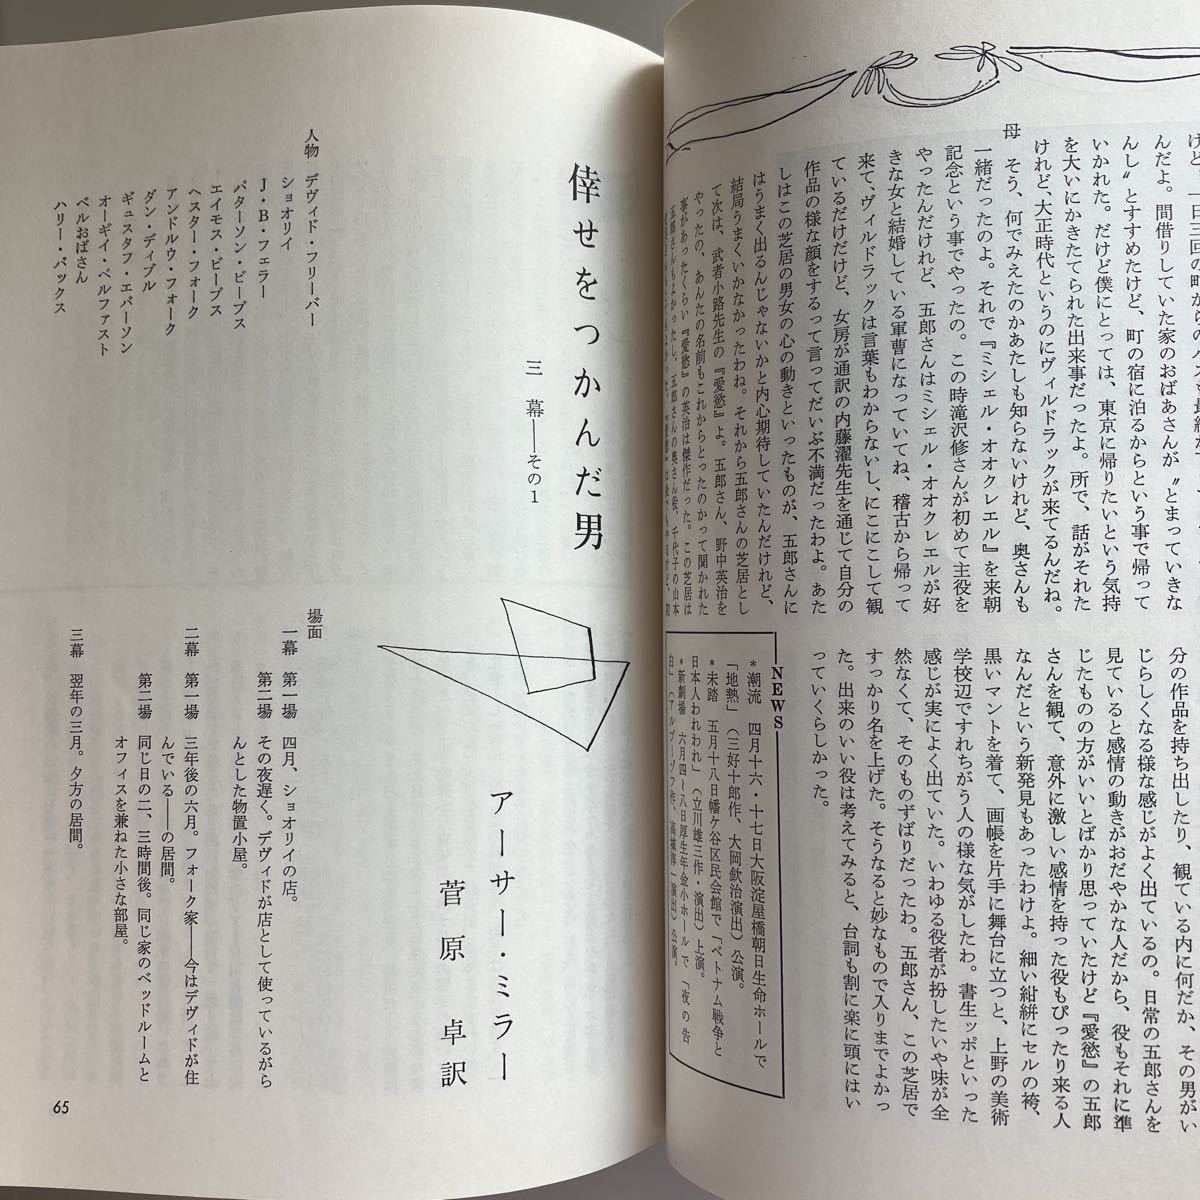 けど、一日三回の町からの
んだよ。間借りしていた家のおばあさんが〝とまっていきな
んし〟とすすめたけど、町の宿に泊るからという事で帰って
いかれた。だけど僕にとっては、東京に帰りたいという気持
を大いにかきたてられた出来事だったよ。所で、話がそれた
けれど、大正時代というのにヴィルドラックが来てるんだね。
母 そう、何でみえたのかあたしも知らないけれど、奥さんも
一緒だったのよ。それで『ミシェル・オオクレエル』を来朝
記念という事でやったの。この時滝沢修さんが初めて主役を
やったんだけれど、五郎さんはミシェル・オオクレエルが好
きな女と結婚している軍曹になっていてね、稽古から帰って
来て、ヴィルドラックは言葉もわからないし、にこにこして観
ているだけだけど、女房が通訳の内藤濯先生を通じて自分の
作品の様な顔をするって言ってだいぶ不満だったわよ。あた
しはこの芝居の男女の心の動きといったものが、五郎さんに
はうまく出るんじゃないかと内心期待していたんだけれど、
結局うまくいかなかったわね。それから五郎さんの芝居とし
て次は、武者小路先生の『愛慾』よ。五郎さん、野中英治を
やったの、あんたの名前もこれからとったのかって聞かれた
事があったくらい『愛慾』の英治は傑作だった。この芝居は
五郎さんもよかったし、五郎さんの奥さん役、千代子の山本
分の作品を持ち出したり、観ている内に何だか、その男がい
じらしくなる様な感じがよく出ているの。日常の五郎さんを
見ていると感情の動きがおだやかな人だから、役もそれに準
じたものの方がいいとばかり思っていたけど『愛慾』の五郎
さんを観て、意外に激しい感情を持った役もぴったり来る人
なんだという新発見もあったわけよ。細い紺絣にセルの袴、
黒いマントを着て、画帳を片手に舞台に立つと、上野の美術
学校辺ですれちがう人の様な気がしたわ。書生ッポといった
感じが実によく出ていた。いわゆる役者が扮したいや味が全
然なくて、そのものずばりだったわ。五郎さん、この芝居で
すっかり名を上げた。そうなると妙なもので入りまでよかっ
た。出来のいい役は考えてみると、台詞も割に楽に頭にはい
っていくらしかった。
NEWS
*潮流 四月十六・十七日大阪淀屋橋朝日生命ホールで
「地熱」(三好十郎作、大岡欽治演出)公演。
*未踏 五月十八日幡ケ谷区民会館で「ベトナム戦争と
日本人われわれ」(立川雄三作・演出)上演。
*新劇場 六月四~八日厚生年金小ホールで「夜の告
白」(アルブーゾフ作、高城淳一演出)公演。
倖せをつかんだ男
三幕——その1
アーサー・ミラー
菅原 卓訳
人物 デヴィド・フリーバー
ショオリイ
J・B・フェラー
パターソン・ビーブス
エイモス・ビーブス
ヘスター・フォーク
アンドルウ・フォーク
ダン・ディブル
ギュスタフ・エバーソン
オーギイ・ベルファスト
ベルおばさん
ハリー・バックス
場面
一幕 第一場 四月、ショオリイの店。
第二場 その夜遅く。デヴィドが店として使っているがら
んとした物置小屋。
二幕 第一場 三年後の六月。フォーク家——今はデヴィドが住
んでいる——の居間。
第二場 同じ日の二、三時間後。同じ家のベッドルームと
オフィスを兼ねた小さな部屋。
三幕 翌年の三月。夕方の居間。
65